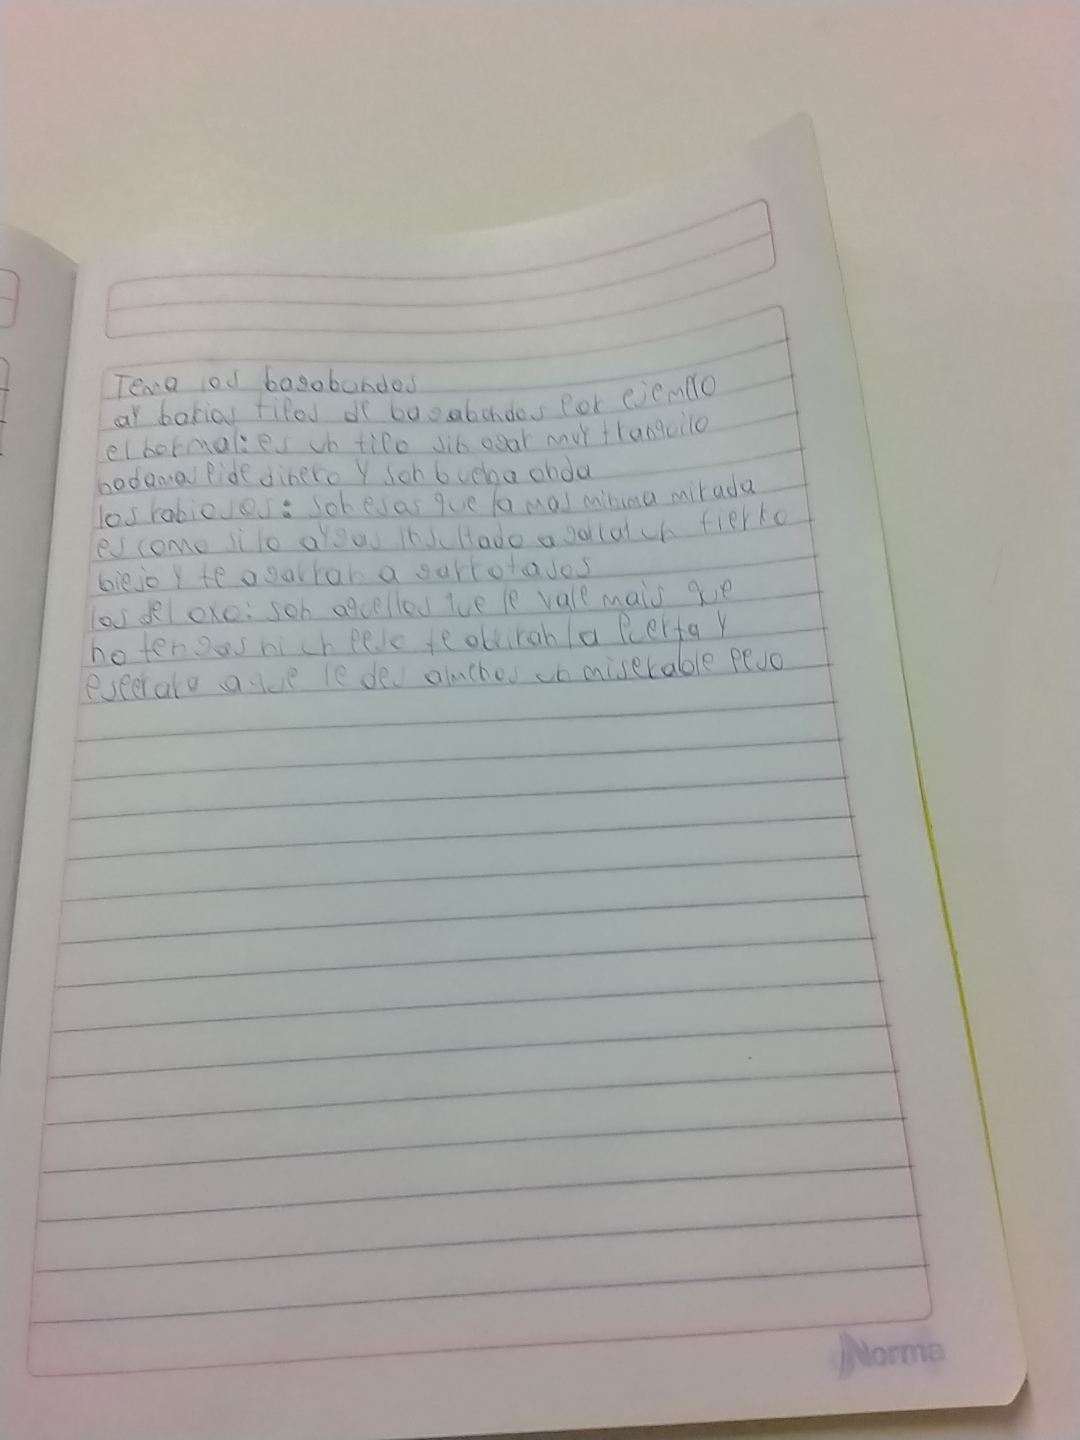 Tema los bagabundos
ay barias tipos de bagabundos por ejemplo
el normal: es un tipo sin ogar muy tranquilo
nadamas pide dinero y son buena onda
los rabiosos: son esas que la mas minima mirada
es como si lo aygas insultado agarrar un fierro
biejo y te agarran a garrotasos
los del oxo: son aqcellos que le vale mais que
no tengas ni un peso te abriran la pcerta y
esperara aque le des almenos un miserable peso
Norma